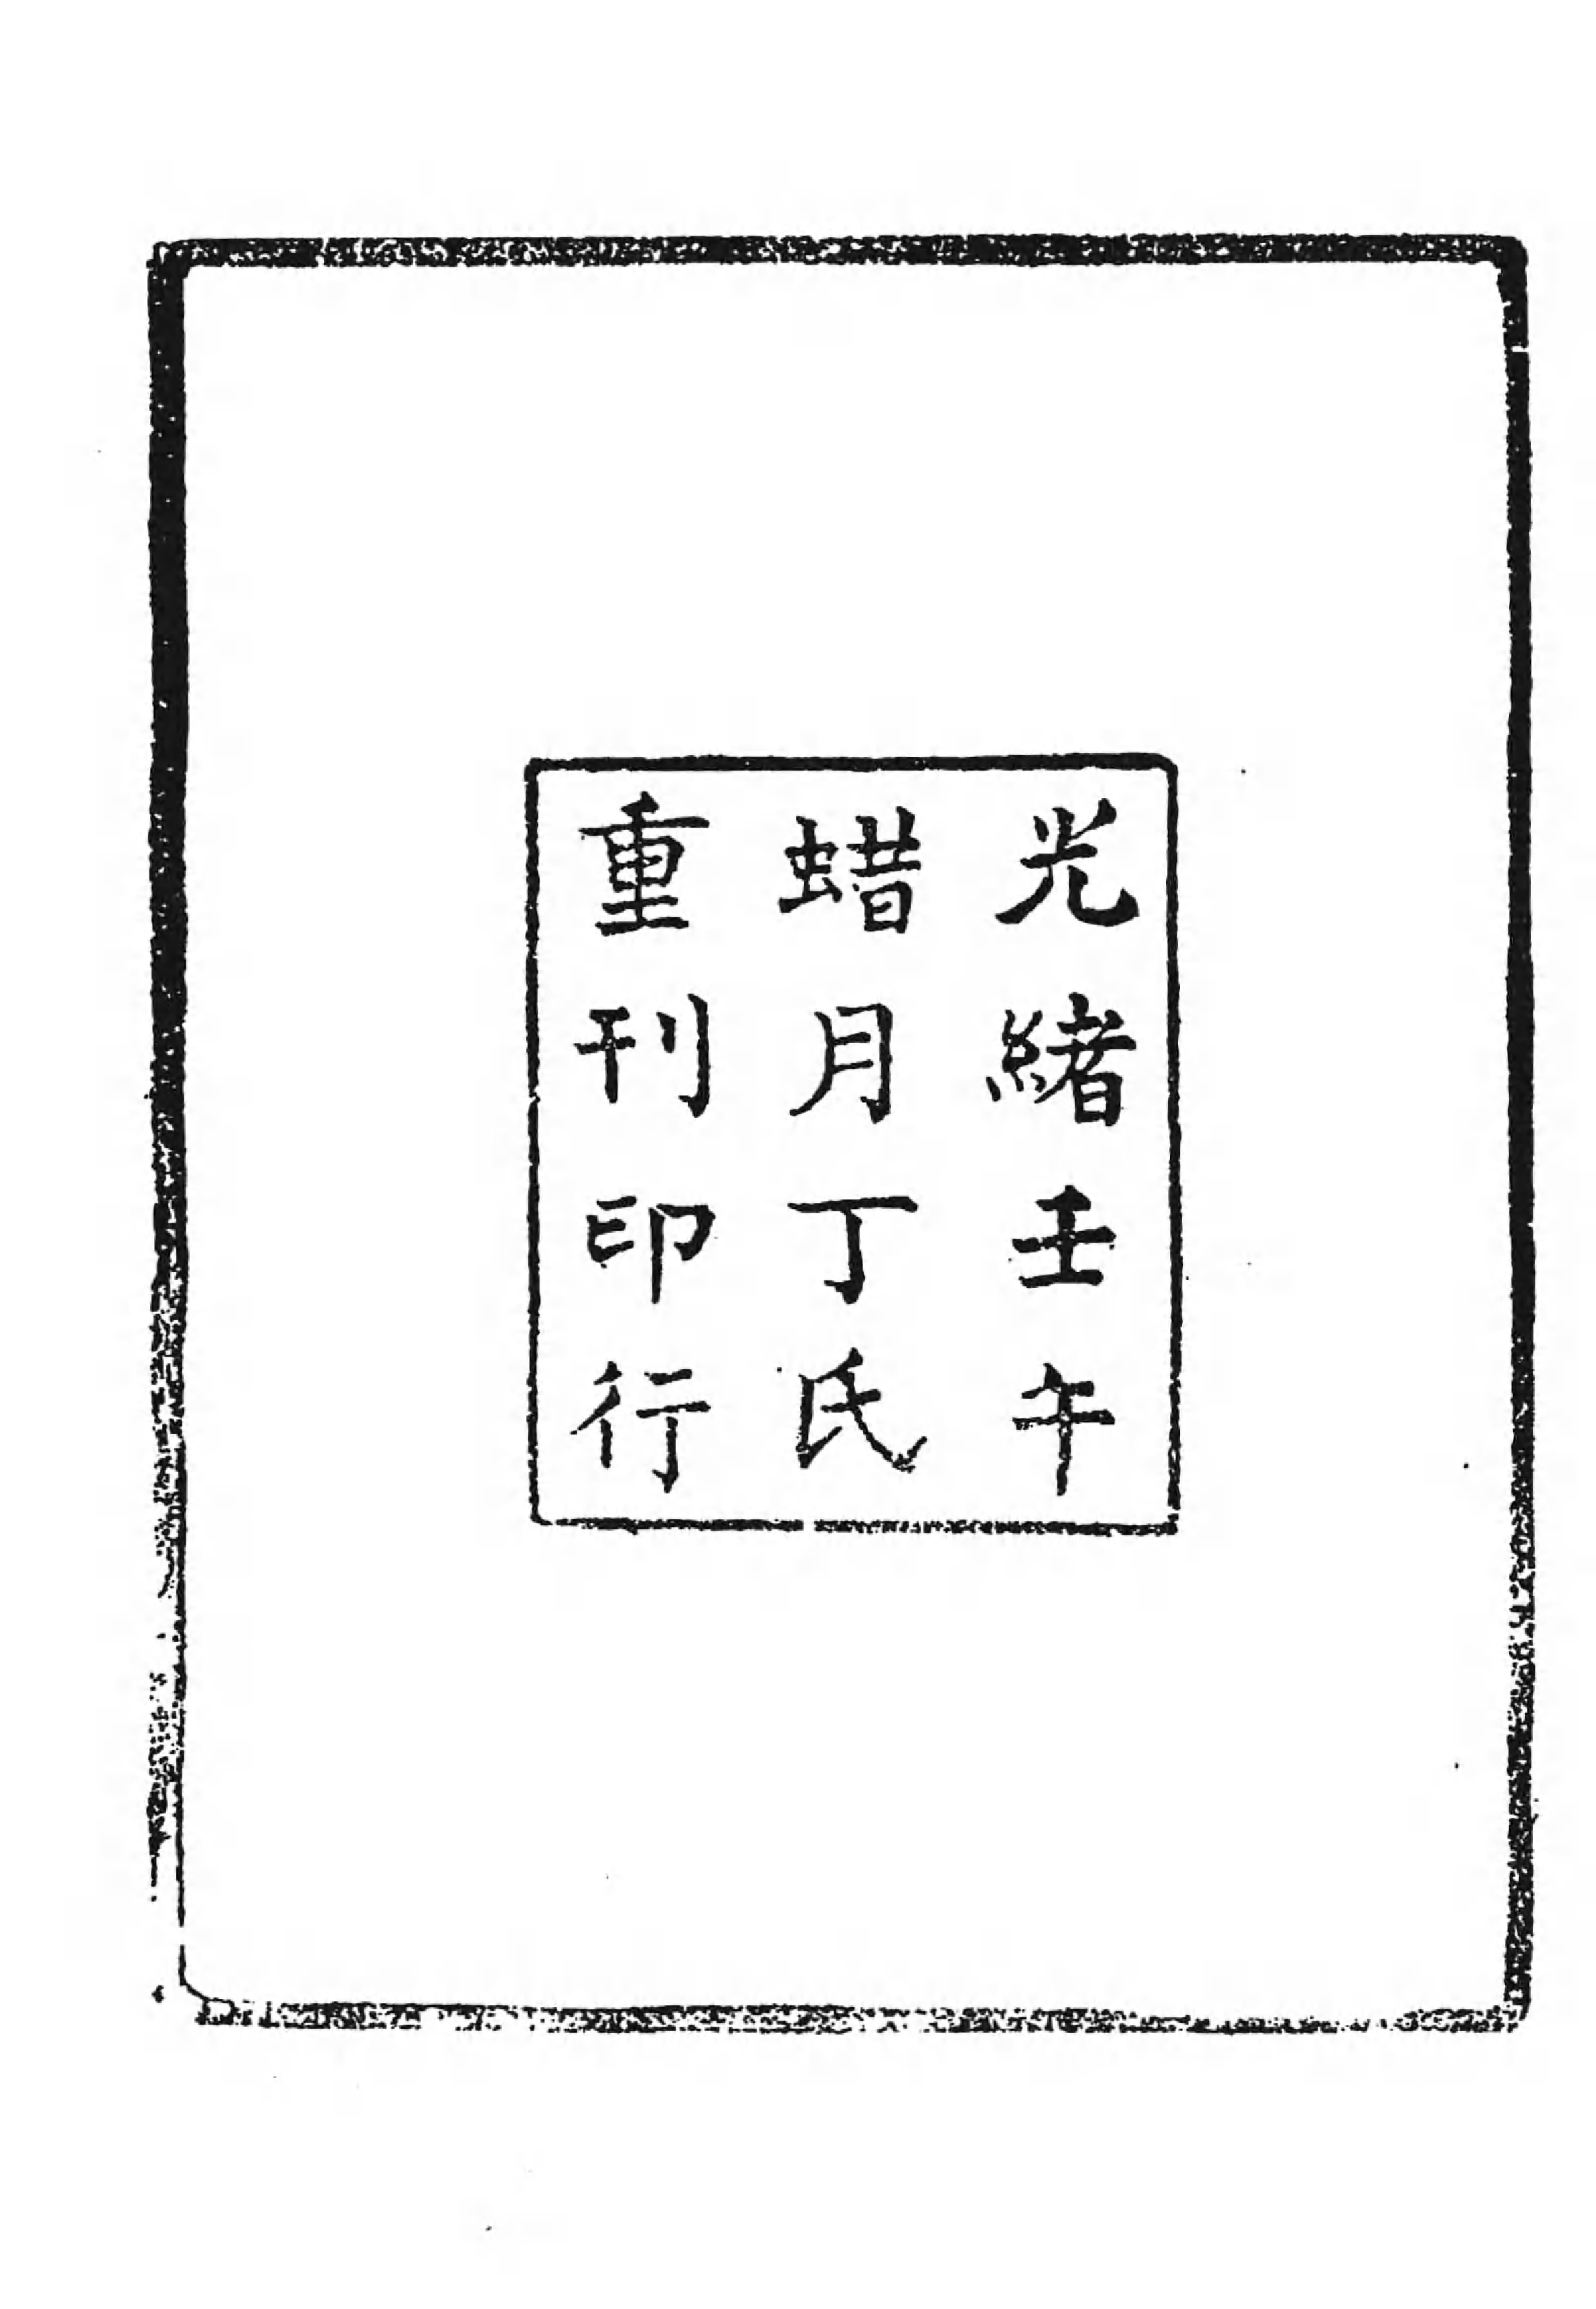 光緒壬午
蜡月丁氏
重刊印行